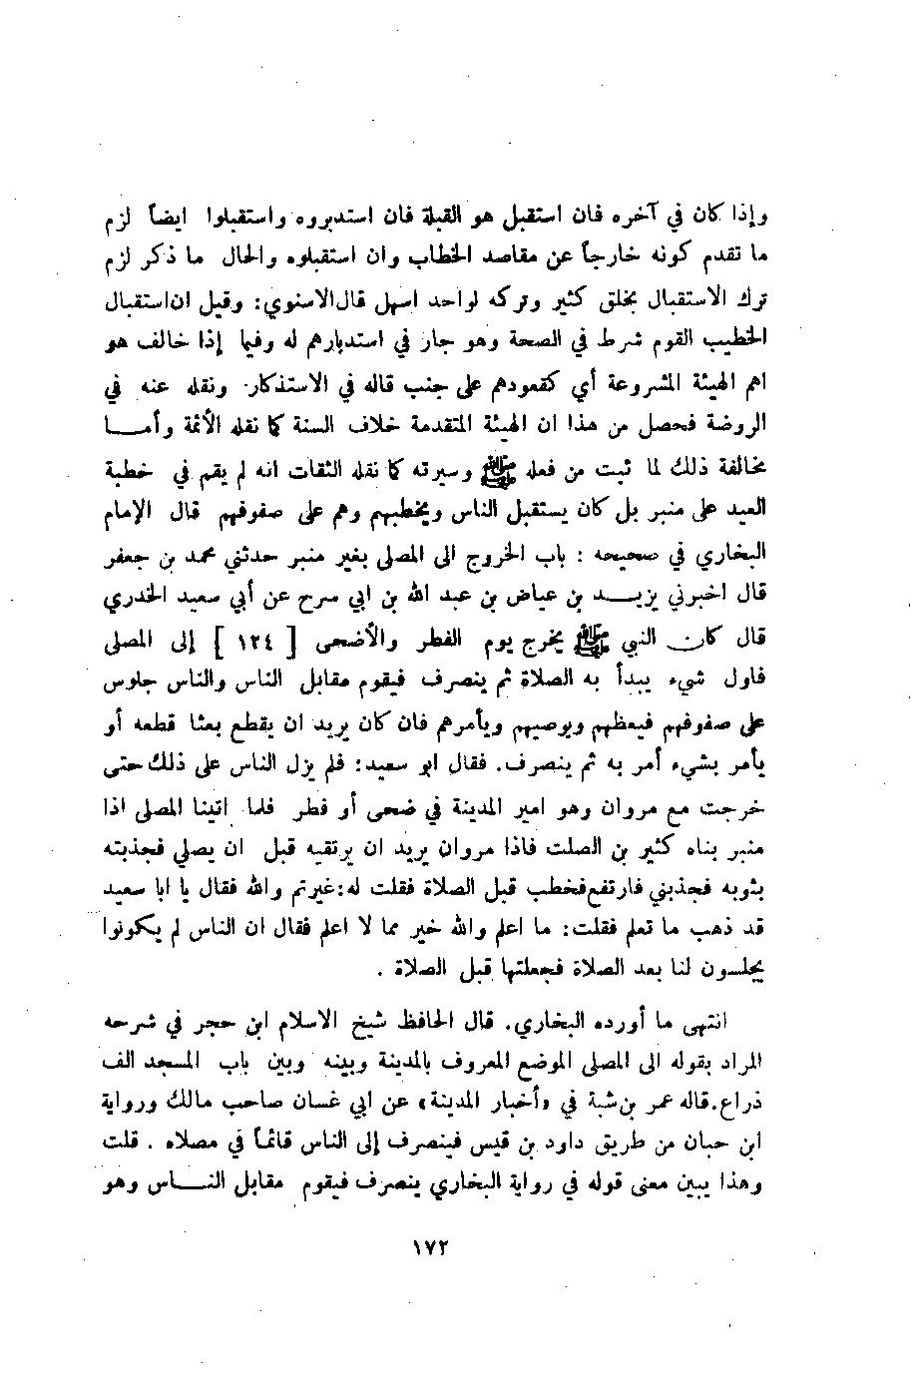 وإذا كان في آخره فان استقبل هو القبلة فان استدبروه واستقبلوا ايضاً لزم
ما تقدم كونه خارجاً عن مقاصد الخطاب وان استقبلوه والحال ما ذكر لزم
ترك الاستقبال بخلق كثير وتركه لواحد اسهل قال الاسنوي: وقيل ان استقبال
الخطيب القوم شرط في الصحة وهو جار في استدبارهم له وفيا إذا خالف هو
اهم الهيئة المشروعة أي كقعودهم على جنب قاله في الاستذكار ونقله عنه في
الروضة فحصل من هذا ان الهيئة المتقدمة خلاف السنة كما نقله الأئمة وأمـــا
مخالفة ذلك لما ثبت من فعله ﷺ وسيرته كما نقله الثقات انه لم يقم في خطبة
العيد على منبر بل كان يستقبل الناس ويخطبهم وهم على صفوفهم قال الإمام
البخاري في صحيحه : باب الخروج الى المصلى بغير منبر حدثني محمد بن جعفر
قال اخبرني يزيـــد بن عياض بن عبد الله بن ابي سرح عن أبي سعيد الخدري
قال كان النبي ﷺ يخرج يوم الفطر والأضحى [ ١٢٤ ] إلى المصلى
فاول شيء يبدأ به الصلاة ثم ينصرف فيقوم مقابل الناس والناس جلوس
على صفوفهم فيعظهم ويوصيهم ويأمرهم فان كان يريد ان يقطع بعثا قطعه أو
يأمر بشيء أمر به ثم ينصرف. فقال ابو سعيد: فلم يزل الناس على ذلك حتى
خرجت مع مروان وهو امير المدينة في ضحى أو فطر فلما اتينا المصلى اذا
منبر بناه كثير بن الصلت فاذا مروان يريد ان يرتقيه قبل ان يصلي فجذبته
بثوبه فجذبني فارتفع فخطب قبل الصلاة فقلت له: غيرتم والله فقال يا ابا سعيد
قد ذهب ما تعلم فقلت: ما اعلم والله خير مما لا اعلم فقال ان الناس لم يكونوا
يجلسون لنا بعد الصلاة فجعلتها قبل الصلاة .
انتهى ما أورده البخاري. قال الحافظ شيخ الاسلام ابن حجر في شرحه
المراد بقوله الى المصلى الموضع المعروف بالمدينة وبينه وبين باب المسجد الف
ذراع. قاله عمر بن شبة في «أخبار المدينة» عن ابي غسان صاحب مالك ورواية
ابن حبان من طريق داود بن قيس فينصرف إلى الناس قائماً في مصلاه . قلت
وهذا يبين معنى قوله في رواية البخاري ينصرف فيقوم مقابل النـــاس وهو
١٧٢